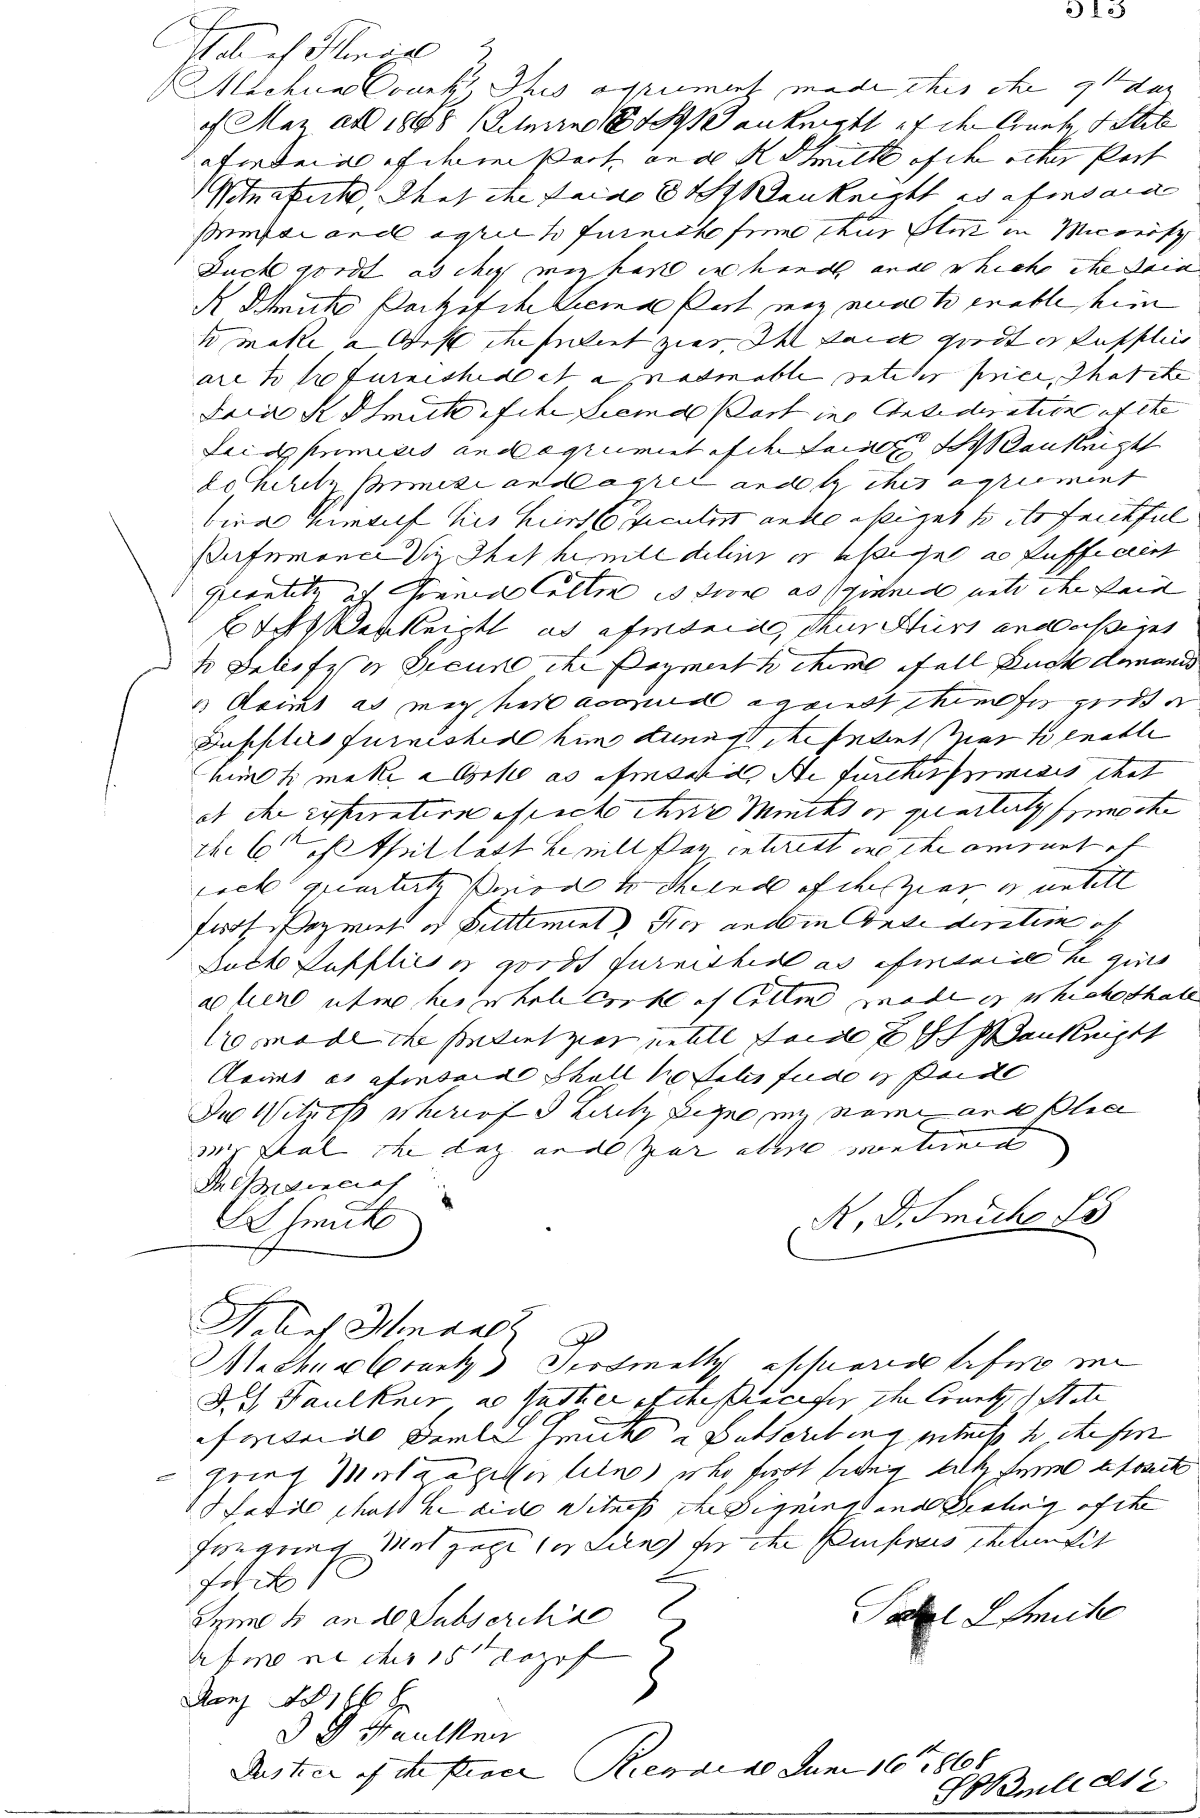 513
State of Florida
Alachua County This agreement made this the 9th day
of May AD 1868 Between E & S J Bauknight of the County & State
aforesaid of the one Part and K D Smith of the other Part
Witnesseth, That the said E & S J Bauknight as aforesaid
promise and agree to furnish from their Store in Micanopy
Such goods as they may have on hand and which the Said
K D Smith Party of the Second Part may need to enable him
to make a Crop the present year, The said goods or Supplies
are to be furnished at a reasonable rate or price, That the
Said K D Smith of the Second Part in Consideration of the
Said promises and agreement of the Said E & S J Bauknight
do hereby promise and agree and by this agreement
bind himself his heirs Executors and assigns to its faithful
Performance Viz That he will deliver or assign a Sufficient
quantity of Ginned Cotton as soon as ginned unto the Said
E & S J Bauknight as aforesaid, their Heirs and assigns
to Satisfy or Secure the Payment to them of all Such demands
or Claims as may have accrued against them for goods or
Supplies furnished him during the present Year to enable
him to make a Crop as aforesaid. He further promises that
at the expiration of each three Months or quarterly from the
the 6th of April last he will Pay interest on the amount of
each quarterly Period to the end of the Year, or untill
first Payment or Settlement, For and in Consideration of
Such Supplies or goods furnished as aforesaid he gives
a lien upon his whole Crop of Cotton made or which shall
be made the present year untill Said E & S J Bauknight
Claims as aforesaid Shall be Satisfied or Paid
In Witness whereof I hereby Sign my name and Place
my Seal the day and Year above mentioned
In Presence of
S L Smith
K, D. Smith LS
State of Florida
Alachua County Personally appeared before me
J. G. Faulkner a Justice of the Peace for the County & State
aforesaid Saml L Smith a Subscribing witness to the fore
going Mortgage (or lien) who first being duly sworn deposeth
& Said that he did Witness the Signing and Sealing of the
foregoing Mortgage (or Lien) for the Purposes therein Set
forth
Sworn to and Subscribed
before me this 15th day of
May AD 1868
Saml L Smith
J G Faulkner
Justice of the Peace
Recorded June 16th 1868